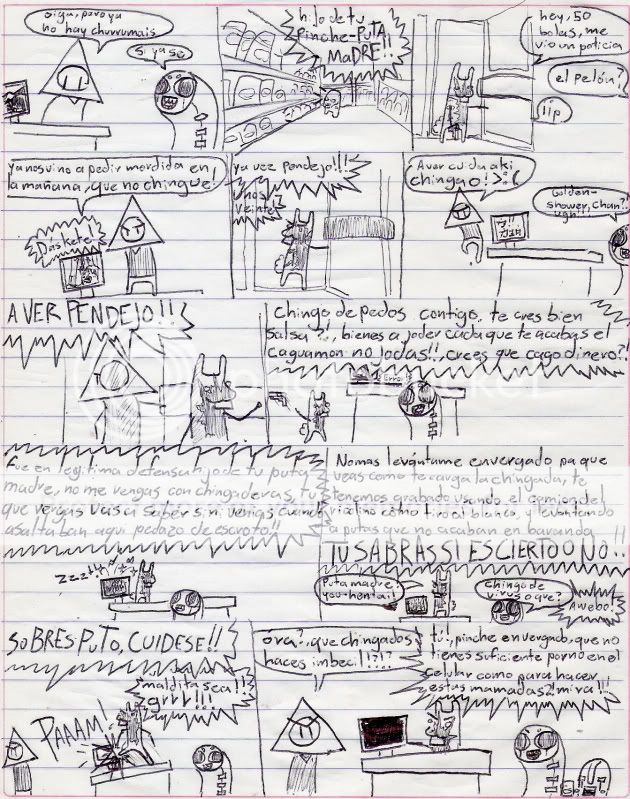 oiga, pero ya
no hay churrumais
Si ya se
hijo de tu
Pinche-PUTA
MaDRE!!
hey, 50
bolas, me
vio un policia
el pelón?
iip
ya nos vino a pedir mordida en
la mañana, que no chingue!
Daskete!
ya vez pendejo!!!
Unos
veinte!
Aver cuida aki
chingao!
Golden-
shower, chan
ugh!!!
AVER PENDEJO!!
Chingo de pedos contigo, te cres bien
salsa?!, bienes a joder cada que te acabas el
caguamon no Jodas!!, crees que cago dinero?!
Error!!
Fue en legitima defensa hijo de tu puta
madre, no me vengas con chingaderas, tu
que vergas vas a saber si ni venias cuando
asaltaban aqui pedazo de escroto!!
Nomas levántame envergado pa que
veas como te carga la chingada, te
tenemos grabado usando el camion del
vecino como tiro al blanco, y levantando
a putas que no acaban en baranda
TU SABRAS SI ES CIERTO O NO..
zzz!!
Puta madre,
you-hentai!
Chingo de
virus o que?
Awebo!
SOBRES PUTO, CUIDESE!!
maldita sea!!
grrr!!!
PAAAM!
ora?, que chingados
haces imbecil!?!?
tu!, pinche envergado, que no
tienes suficiente porno en el
celular como para hacer
estas mamadas?, mira!!!